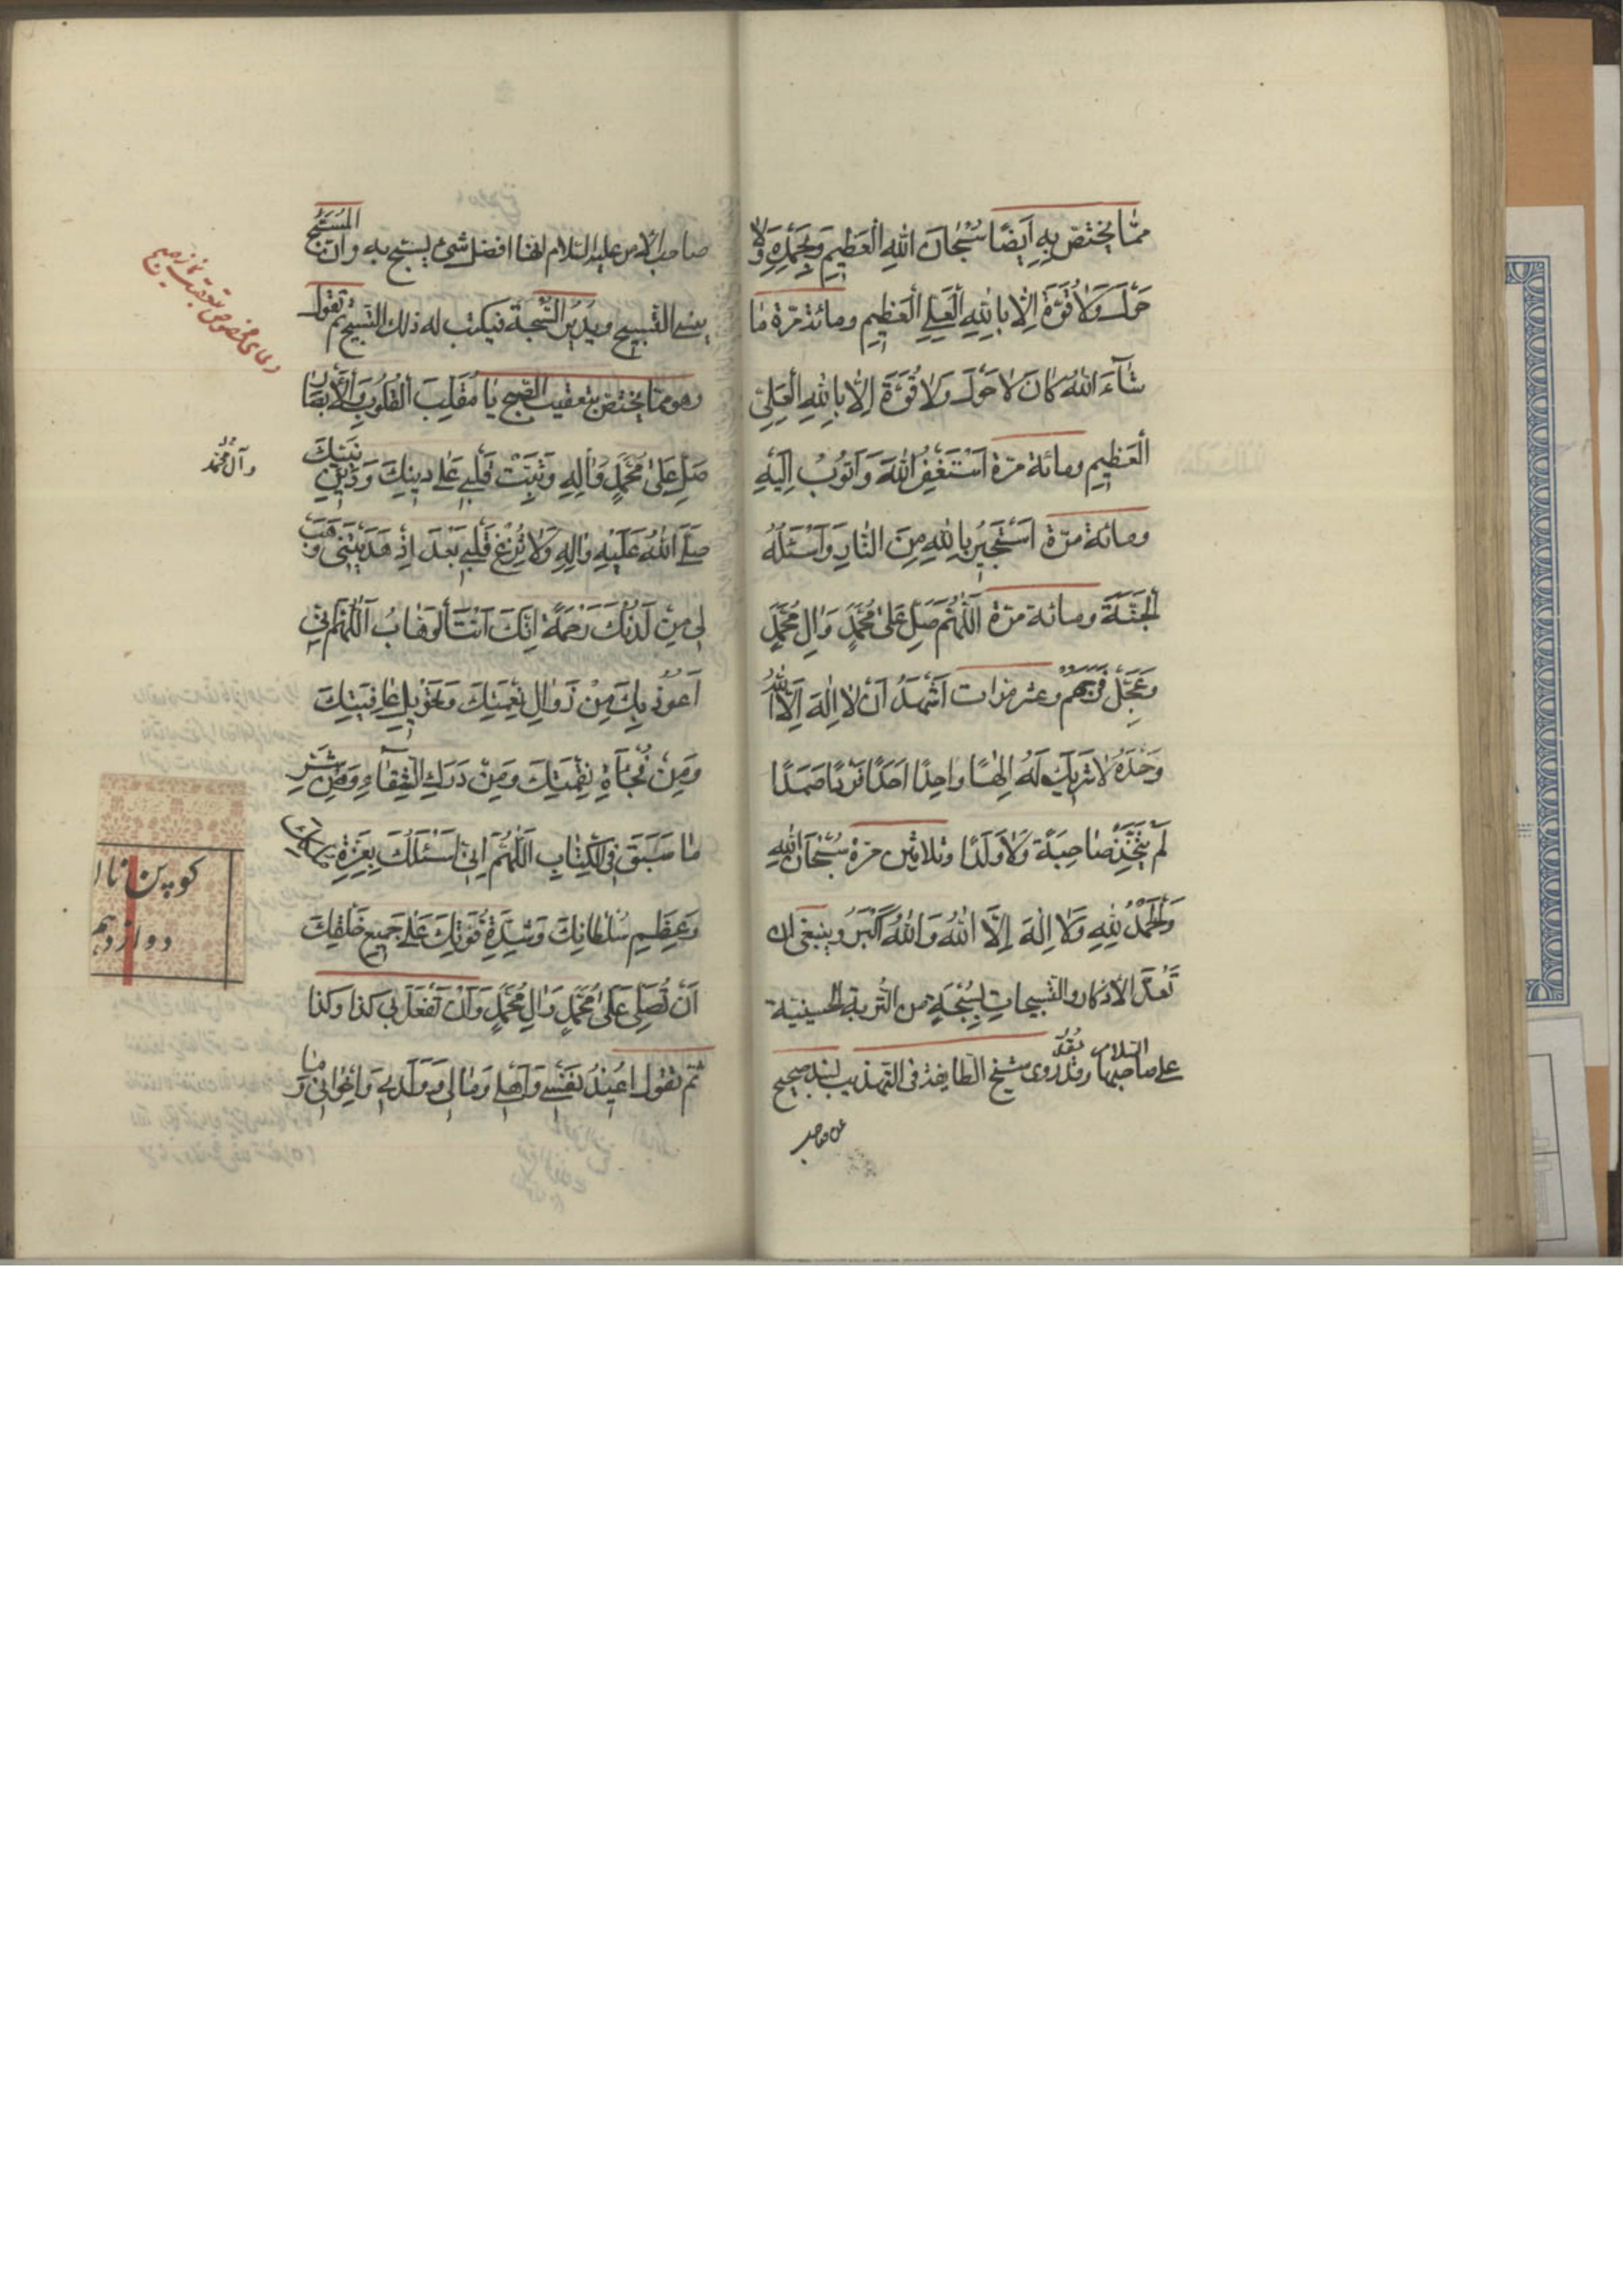 ممّا يختصّ بِهِ اَيضًا سُبْحانَ اللهِ الْعَظِيمِ وَبِحَمْدِهِ وَلا
حَوْلَ وَلا قُوَّةَ اِلّا بِاللهِ الْعَلِيِّ الْعَظِيمِ ومائة مرّة مٰا
شٰآءَ اللهُ كانَ لا حَوْلَ وَلا قُوَّةَ اِلّا بِاللهِ الْعَلِيِّ
الْعَظِيمِ ومائة مرّة اَسْتَغْفِرُ اللهَ وَاَتُوبُ اِلَيْهِ
ومائة مرّة اَسْتَجِيرُ بِاللهِ مِنَ النّارِ وَاَسْئَلُهُ
الْجَنَّةَ ومائة مرّة اَللّهُمَّ صَلِّ عَلىٰ مُحَمَّدٍ وَاٰلِ مُحَمَّدٍ
وَعَجِّلْ فَرَجَهُمْ وعشر مرّات اَشْهَدُ اَنْ لا اِلٰهَ اِلَّا اللهُ
وَحْدَهُ لا شَرِيكَ لَهُ اِلٰهًا واحِدًا اَحَدًا فَرْدًا صَمَدًا
لَمْ يَتَّخِذْ صٰاحِبَةً وَلا وَلَدًا وثلاثين مرّة سُبْحانَ اللهِ
وَالْحَمْدُ لِلّهِ وَلا اِلٰهَ اِلَّا اللهُ وَاللهُ اَكْبَرُ وينبغى ان
تَعُدّ الأذكار والتسبيحات بِسُبْحَةٍ من التُّربة الحسينيّة
على صاحبها السلام فقد روى شيخ الطايفة فى التهذيب بسند صحيح
عن صاحب
صاحب الأمر عليه السّلام انها افضل شئ يسبّح به وان المُسَبِّح
ينسى التسبيح ويُدِيرُ السُّبحة فيكتب له ذلك التسبيح ثم تقول
وهو ممّا يختصّ بتعقيب الصّبح يٰا مُقَلِّبَ الْقُلُوبِ وَالْاَبْصٰارِ
صَلِّ عَلىٰ مُحَمَّدٍ وَاٰلِهِ وَثَبِّتْ قَلْبِي عَلىٰ دِينِكَ وَدِينِ نَبِيِّكَ
وآل محمّد
صَلَّى اللهُ عَلَيْهِ وَاٰلِهِ وَلا تُزِغْ قَلْبِي بَعْدَ اِذْ هَدَيْتَنِى وَهَبْ
لِى مِنْ لَدُنْكَ رَحْمَةً اِنَّكَ اَنْتَ الْوَهّٰابُ اَللّهُمَّ اِنِّى
اَعُوذُ بِكَ مِنْ زَوٰالِ نِعْمَتِكَ وَتَحْوِيلِ عٰافِيَتِكَ
وَمِنْ فُجٰأَةِ نِقْمَتِكَ وَمِنْ دَرَكِ الشَّقٰآءِ وَمِنْ شَرِّ
مٰا سَبَقَ فِى الْكِتٰابِ اَللّهُمَّ اِنِّى اَسْئَلُكَ بِعِزَّةِ مُلْكِكَ
وَعَظِيمِ سُلْطانِكَ وَشِدَّةِ قُوَّتِكَ عَلىٰ جَمِيعِ خَلْقِكَ
اَنْ تُصَلِّىَ عَلىٰ مُحَمَّدٍ وَاٰلِ مُحَمَّدٍ وَاَنْ تَفْعَلَ بِى كَذا وَكَذا
ثم تقول اُعِيذُ نَفْسِى وَاَهْلِى وَمٰالِى وَوَلَدِى وَاِخْوٰانِى وَمٰا
دعاى مخصوص تعقيب نماز صبح
كوپن
دوازدهم